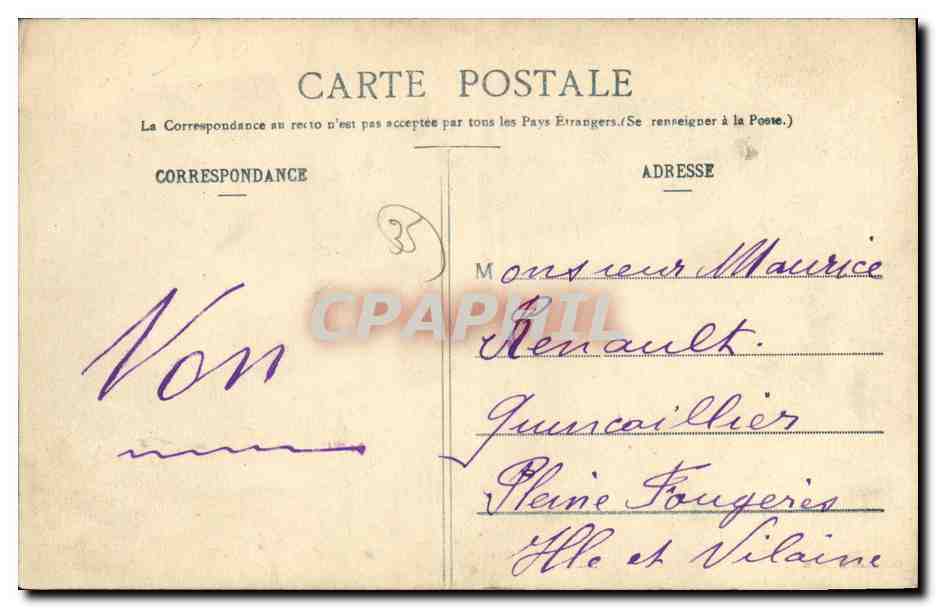 CARTE POSTALE
La Correspondance au recto n'est pas acceptée par tous les Pays Étrangers. (Se renseigner à la Poste.)
CORRESPONDANCE
35
Von
ADRESSE
Monsieur Maurice
Renault.
Quincaillier
Pleine Fougères
Ille et Vilaine
CPAPHIL